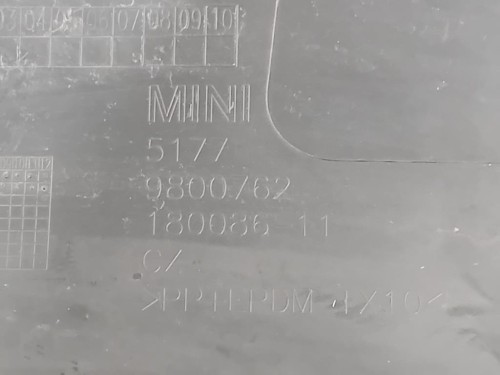 03 04 05 06 07 08 09 10
MINI
5177
9800762
180086 11
>PP+EPDM-TX10<